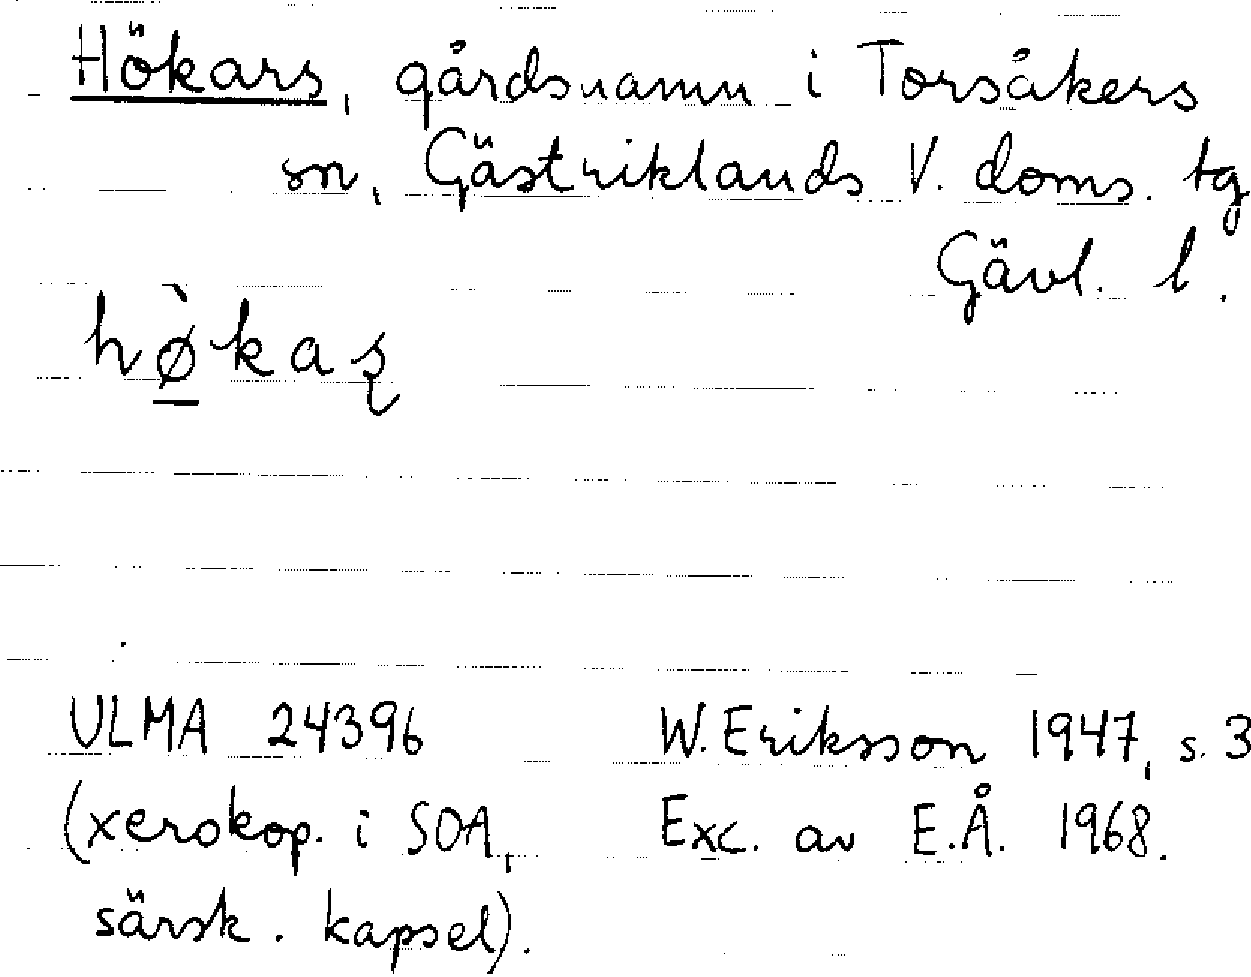 Hökars, gårdsnamn i Torsåkers
sn, Gästriklands V. doms. tg
Gävl. l.
hø̀kaʂ
ULMA 24396 W. Eriksson 1947, s. 3
(xerokop. i SOA, Exc. av E.Å. 1968.
särsk. kapsel).